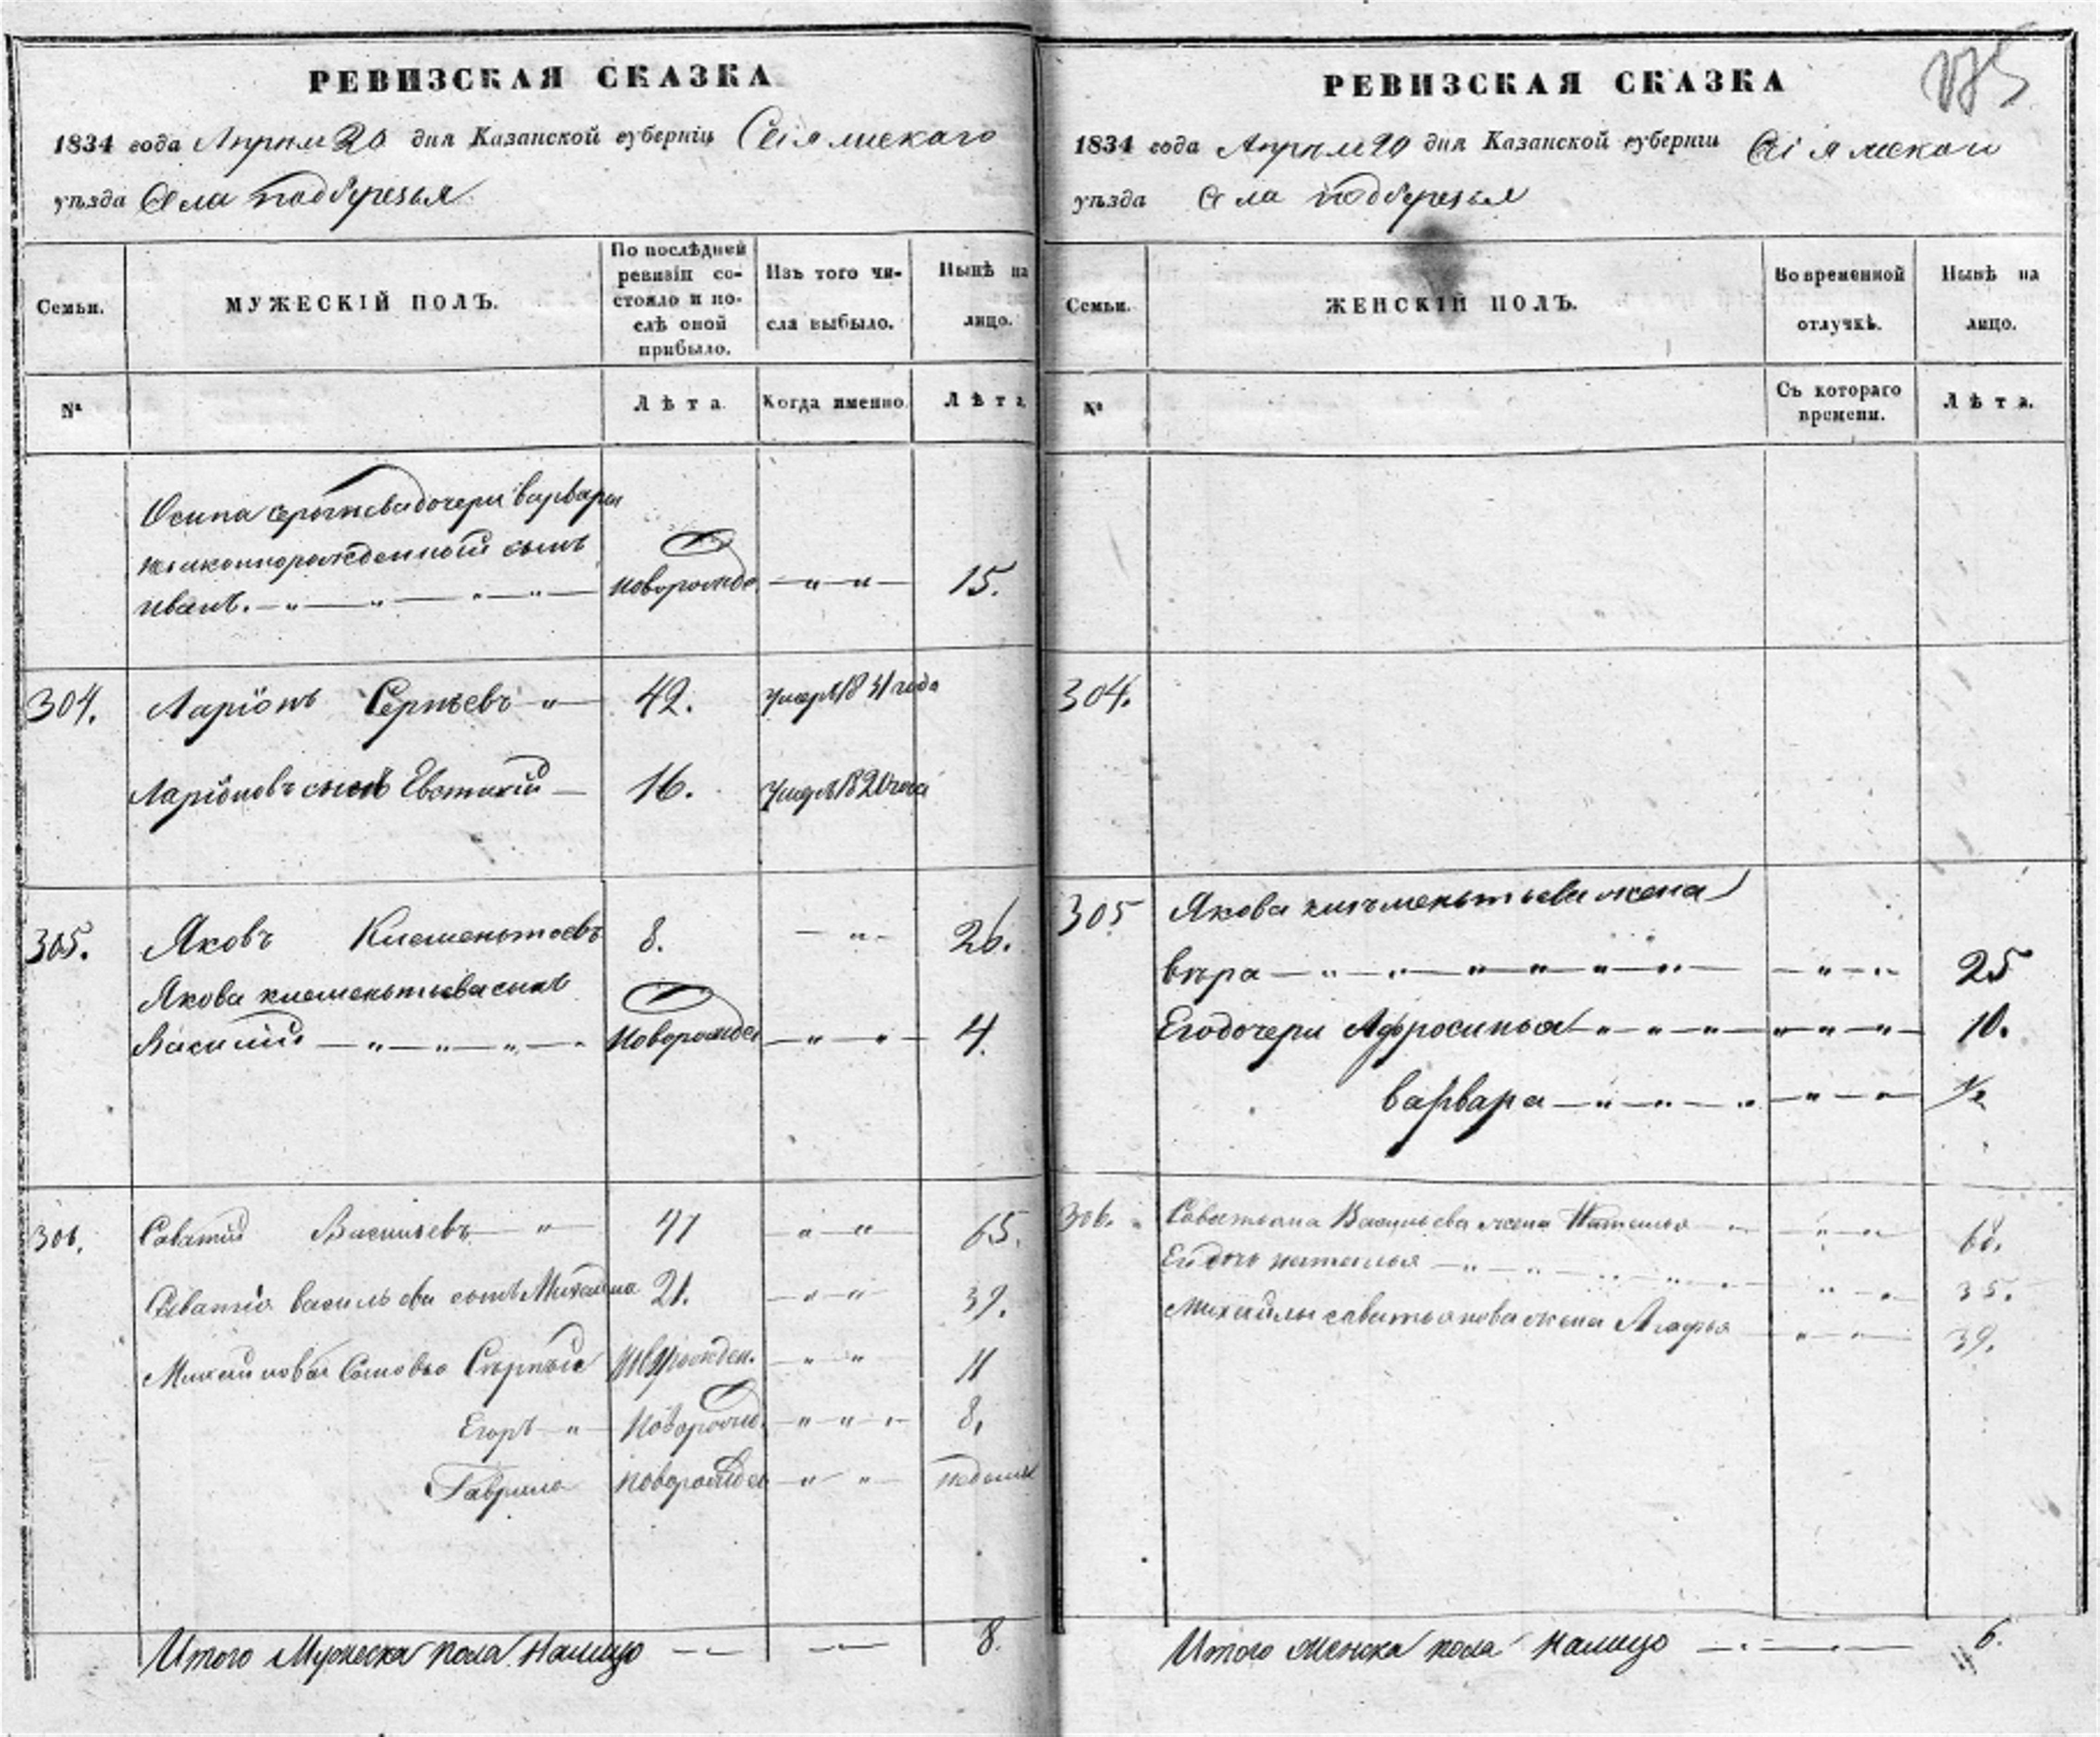 РЕВИЗСКАЯ СКАЗКА
1834 года Апреля 20 дня Казанской губерніи Свіяжскаго
уѣзда Села Подберезья
Семьи.
МУЖЕСКІЙ ПОЛЪ.
По послѣдней
ревизіи со-
стояло и по-
слѣ оной
прибыло.
Изъ того чи-
сла выбыло.
Нынѣ на
лицо.
№
Лѣта.
Когда именно.
Лѣта.
Осипа Сергѣева дочери варвары
незаконнорожденной сынъ
иванъ. новорожде. 15.
304. Ларіонъ Сергѣевъ 42. умеръ 1831 года
Ларіоновъ сынъ Евстихій 16. умеръ 1821 года
305. Яковъ Клементьевъ 8. 26.
Якова клементьева сынъ
Василій новорожден 4.
306. Саватій Васильевъ 47 65.
Саватія васильева сынъ Михаила 21. 39.
Михайловы Сыновья Сергѣй новорожден. 11
Егоръ новорожд. 8.
Гаврила новорожден
Итого Мужеска пола налицо 8.
175
РЕВИЗСКАЯ СКАЗКА
1834 года Апреля 20 дня Казанской губерніи Свіяжскаго
уѣзда Села подберезья
Семьи.
ЖЕНСКІЙ ПОЛЪ.
Во временной
отлучкѣ.
Нынѣ на
лицо.
№
Съ котораго
времени.
Лѣта.
304.
305 Якова клементьева жена
вѣра 25
Его дочери Афросинья 10.
варвара 1/2
306. Саватьяна Васильева жена Наталья
Ей дочь наталья 35.
Михайлы саватьянова жена Агафья 39.
Итого женска пола налицо 6.